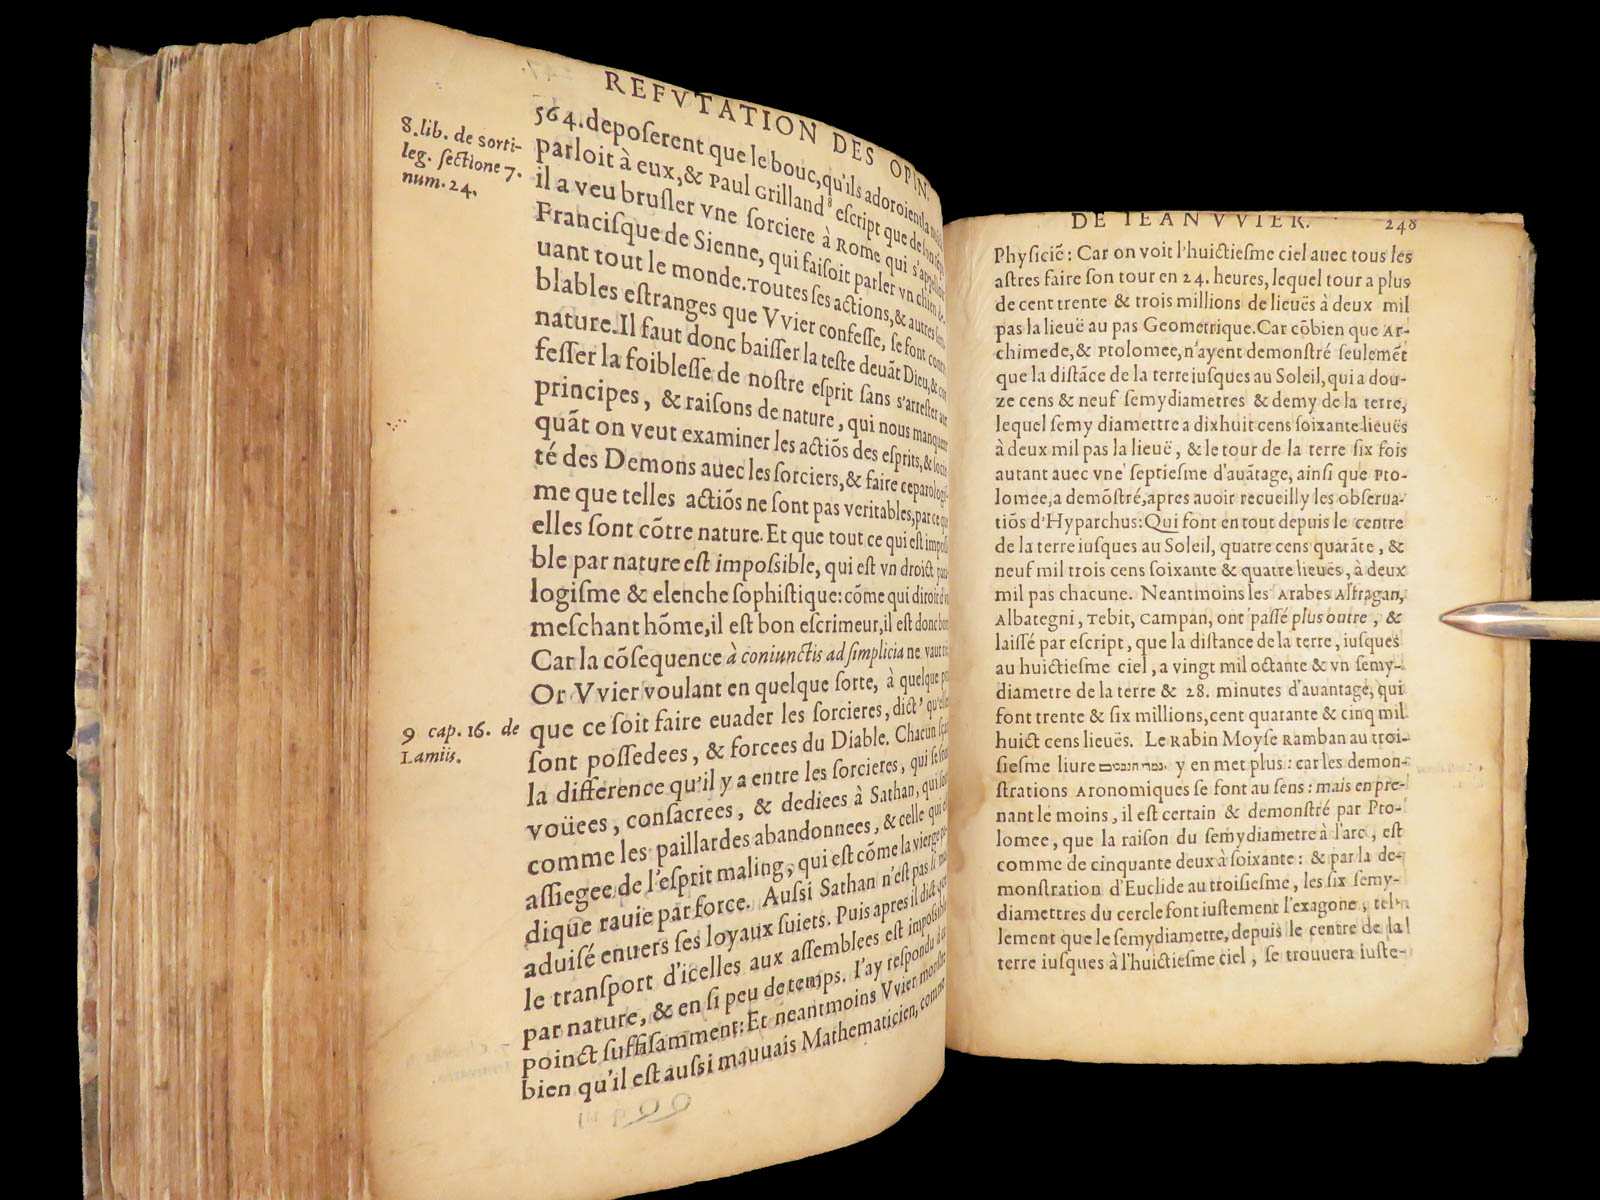 REFVTATION DES OPIN.
8. lib. de sorti-
leg. sectione 7.
num. 24.
564. deposerent que le bouc, qu'ils adoroient,
parloit à eux, & Paul Grilland⁸ escript que de
il a veu brusler vne sorciere à Rome qui s'appelloit
Francisque de Sienne, qui faisoit parler vn chien
uant tout le monde. Toutes ses actions, & autres
blables estranges que Vvier confesse, se font
nature. Il faut donc baisser la teste deuāt Dieu, &
fesser la foiblesse de nostre esprit sans s'arrester aux
principes, & raisons de nature, qui nous manquent
quāt on veut examiner les actiōs des esprits, &
té des Demons auec les sorciers, & faire ce paralogis
me que telles actiōs ne sont pas veritables, par ce que
elles sont cōtre nature. Et que tout ce qui est impossi
ble par nature est impossible, qui est vn droict para
logisme & elenche sophistique: cōme qui diroit
meschant hōme, il est bon escrimeur, il est donc bon
Car la cōsequence à coniunctis ad simplicia ne vaut
Or Vvier voulant en quelque sorte, à quelque
9 cap. 16. de
Lamiis.
que ce soit faire euader les sorcieres, dict⁹ qu'elles
sont possedees, & forcees du Diable. Chacun
la difference qu'il y a entre les sorcieres, qui se sont
voüees, consacrees, & dediees à Sathan, qui sont
comme les paillardes abandonnees, & celle qui est
assiegee de l'esprit maling, qui est cōme la vierge
dique rauie par force. Aussi Sathan n'est pas si mal
aduisé enuers ses loyaux suiets. Puis apres il dict que
le transport d'icelles aux assemblees est impossible
par nature, & en si peu de temps. I'ay respondu
poinct suffisamment: Et neantmoins Vvier monstre
bien qu'il est aussi mauuais Mathematicien, comme
DE IEAN VVIER. 248
Physiciē: Car on voit l'huictiesme ciel auec tous les
astres faire son tour en 24. heures, lequel tour a plus
de cent trente & trois millions de lieuës à deux mil
pas la lieuë au pas Geometrique. Car cōbien que Ar-
chimede, & Ptolomee, n'ayent demonstré seulemēt
que la distāce de la terre iusques au Soleil, qui a dou-
ze cens & neuf semydiametres & demy de la terre,
lequel semy diametre a dixhuit cens soixante lieuës
à deux mil pas la lieuë, & le tour de la terre six fois
autant auec vne septiesme d'auātage, ainsi que Pto-
lomee, a demōstré, apres auoir recueilly les obserua-
tiōs d'Hyparchus: Qui font en tout depuis le centre
de la terre iusques au Soleil, quatre cens quarāte, &
neuf mil trois cens soixante & quatre lieuës, à deux
mil pas chacune. Neantmoins les Arabes Alfragan,
Albategni, Tebit, Campan, ont passé plus outre, &
laissé par escript, que la distance de la terre, iusques
au huictiesme ciel, a vingt mil octante & vn semy-
diametre de la terre & 28. minutes d'auantage, qui
font trente & six millions, cent quarante & cinq mil
huict cens lieuës. Le Rabin Moyse Ramban au troi-
siesme liure y en met plus: car les demon-
strations Aronomiques se font au sens: mais en pre-
nant le moins, il est certain & demonstré par Pto-
lomee, que la raison du semydiametre à l'arc, est
comme de cinquante deux à soixante: & par la de-
monstration d'Euclide au troisiesme, les six semy-
diametres du cercle font iustement l'exagone, tel-
lement que le semydiametre, depuis le centre de la
terre iusques à l'huictiesme ciel, se trouuera iuste-